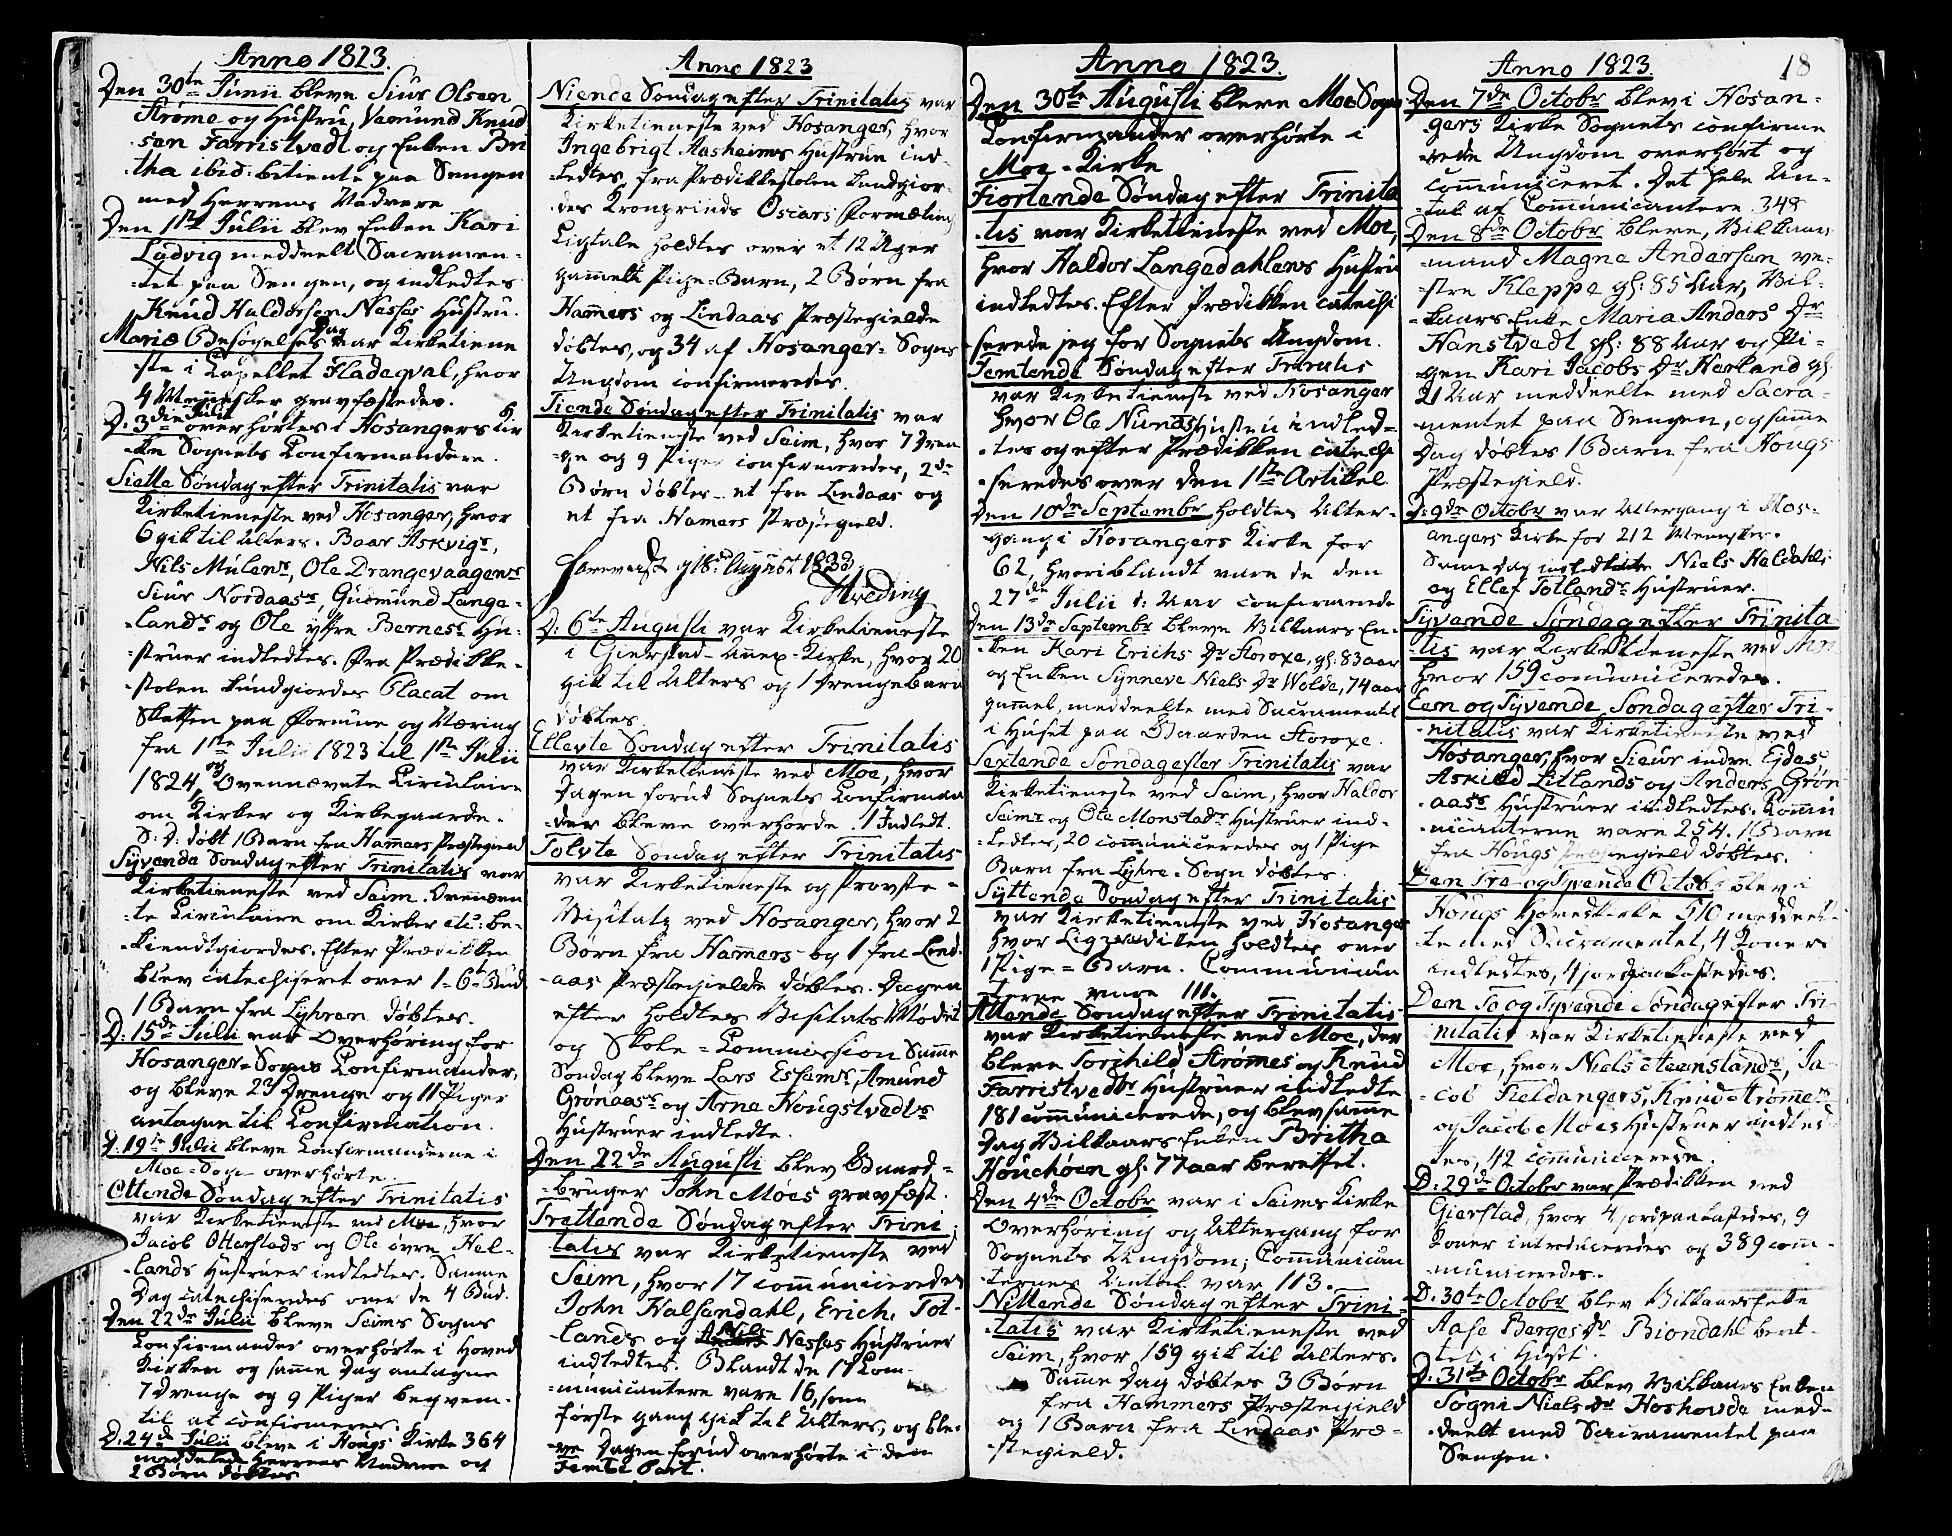 Anno 1823.
Den 30te Junii bleve Siur Olsen
Strøme og Hustru, Vaemund Knud
sen Farristvedt og Enken Bri
tha ibid: betiente paa Sengen
med Herrens Nadvere
Den 1ste Julii blev Enken Kari
Ladvig meddeelt Sacramen-
tet paa Sengen, og indledtes
Knud Haldorsen Nesses Hustru.
Mariæ Besøgelses Dag var Kirketiene
ste i Capellet Fladeqval, hvor
4 Mennesker gravfæstedes.
D. 3die Julii overhørtes i Hosangers Kir
ke Sognets Confirmandere.
Siette Søndag efter Trinitatis var
Kirketieneste ved Hosanger, hvor
6 gik til Alters. Baar Askvigs,
Nils Mulens, Ole Drangevaagens
Siur Nordaass, Gudmund Lange-
lands og Ole ytre Berness Hu-
struer indledtes. Fra Prædikke-
stolen kundgiordes Placat om
Skatten paa Formue og Næring
fra 1ste Julii 1823 til 1ste Julii
1824, og Ovennævnte Circulaire
om Kirker og Kirkegaarde.
S: D: døbt 1 Barn fra Hammers Præstegield
Syvende Søndag efter Trinitatis var
Kirketieneste ved Seim. Ovennævn
te Circulaire om Kirker etc: be-
kiendtgiordes. Efter Prædikken
blev catechiseret over 1-6te Bud
1 Barn fra Lyhren døbtes.
D. 15de Julii var Overhøring for
Hosanger-Sogns Confirmander,
og bleve 23 Drenge og 11 Piger
antagne til Confirmation.
D. 19de Julii bleve Confirmanderne i
Moe-Sogn overhørte.
Ottende Søndag efter Trinitatis
var Kirketieneste ved Moe, hvor
Jacob Otterstads og Ole øvre Hel-
lands Hustruer indledtes. Samme
Dag catechiseredes over de 4 Bud.
Den 22de Julii bleve Seims Sogns
Confirmander overhørte i Hoved
Kirken og samme Dag antagne
7 Drenge og 9 Piger beqvem-
til at confirmeres.
D. 24de Julii bleve i Hougs Kirke 364
meddeelte Herrens Nadvere og
2 Børn døbtes
Anno 1823
Niende Søndag efter Trinitatis var
Kirketieneste ved Hosanger, hvor
Ingebrigt Aasheims Hustrue ind-
ledtes, fra Prædikkestolen kundgior-
des Kronprinds Oscars Formæling
Ligtale holdtes over et 12 Uger
gammelt Pige-Barn, 2 Børn fra
Hammers og Lindaas Præstegielde
døbtes, og 34 af Hosanger-Sogns
Ungdom confirmeredes.
Tiende Søndag efter Trinitatis var
Kirketieneste ved Seim, hvor 7 Dren
ge og 9 Piger confirmeredes, 2de
Børn døbtes - et fra Lindaas og
et fra Hamers Præstegield.
Foreviist d 18de August 1823
Hveding
D. 6te Augusti var Kirketieneste
i Gierstad-Annex-Kirke, hvor 20
gik til Alters og 1 Drengebarn
døbtes.
Ellevte Søndag efter Trinitatis
var Kirketieneste ved Moe, hvor
Dagen forud Sognets Confirman
der bleve overhørde. 1 Indledt.
Tolvte Søndag efter Trinitatis
var Kirketieneste og Provste-
Visitatz ved Hosanger, hvor 2
Børn fra Hammers og 1 fra Lind-
aas Præstegielde døbtes. Dagen
efter holdtes Visitats Mødet
og Skole-Commission Samme
Søndag bleve Lars Essems, Amund
Grønaass og Arne Hougstvedts
Hustruer indledte.
Den 22de Augusti blev Gaard-
bruger John Moes gravfæst.
Trettende Søndag efter Trini
tatis var Kirketieneste ved
Seim, hvor 17 communiceredes
John Kalsandahl, Erich Tot-
lands og Nesses Hustruer
indledtes. Blandt de 17 Com-
municantere vare 16, som
første gang gik til Alters, og ble-
ve Dagen forud overhørte i den
Femte Part.
Anno 1823.
Den 30te Augusti bleve Moe Sogns
Confirmander overhørte i
Moe-Kirke
Fiortende Søndag efter Trinita
tis var Kirketieneste ved Moe,
hvor Haldor Langedahlens Hustru
indledtes. Efter Prædikken catechi
serede jeg for Sognets Ungdom.
Femtende Søndag efter Trinitatis
var Kirketieneste ved Hosanger
hvor Ole Nunds Hustru indled-
tes og efter Prædikken catechi
seredes over den 1ste Artikel
Den 10de Septembr holdtes Alter-
gang i Hosangers Kirke for
62, hvoriblandt vare de den
27de Julii d: Aar confirmerede
Den 13de Septembr bleve Vilkaars En-
ken Kari Erichs Dr Horoxe, gl: 83 aar
og Enken Synneve Niels Dr Wolde, 74 aar
gammel, meddeelte med Sacramentet
i Huset paa Gaarden Horoxe.
Sextende Søndag efter Trinitatis var
Kirketieneste ved Seim, hvor Haldor
Seims og Ole Monstads Hustruer ind-
ledtes, 20 communiceredes og 1 Pige
Barn fra Lyhre-Sogn døbtes.
Syttende Søndag efter Trinitatis
var Kirketieneste ved Hosanger
hvor Ligprædiken holdtes over
1 Pige-Barn. Communican
terne vare 111.
Attende Søndag efter Trinitatis
var Kirketieneste ved Moe, der
bleve Torchild Strømes og Knud
Farristvedts Hustruer indledte
181 communicerede, og blev samme
Dag Vilkaars Enken Britha
Houchøen gl: 77 aar berettet.
Den 4de Octobr var i Seims Kirke
Overhøring og Altergang for
Sognets Ungdom; Communican
ternes Antal var 113.
Nittende Søndag efter Trini-
tatis var Kirketieneste ved
Seim, hvor 159 gik til Alters.
Samme Dag døbtes 3 Børn
fra Hammers Præstegield
og 1 Barn fra Lindaas Præ-
stegield.
Anno 1823.
18
Den 7de Octobr blev i Hosan-
gers Kirke Sognets confirme
rede Ungdom overhørt og
communiceret. Det hele An-
tal af Communicantere 348
Den 8de Octobr bleve, Vilkaars
mand Magne Andersen ve-
stre Kleppe gl: 85 Aar, Vil-
kaars Enke Maria Anders Dr
Hanstvedt gl: 88 Aar og Pi-
gen Kari Jacobs Dr Herland gl.
21 Aar meddeelte med Sacra-
mentet paa Sengen, og samme
Dag døbtes 1 Barn fra Hougs
Præstegield.
D. 9de Octobr var Altergang i Hos-
angers Kirke for 212 Mennesker.
Samme Dag indledtes Niels Haldahls
og Ellef Totlands Hustruer.
Tyvende Søndag efter Trinita
tis var Kirketieneste ved
hvor 159 communiceredes.
Een og Tyvende Søndag efter Tri-
nitatis var Kirketieneste ved
Hosanger, hvor Sieur indre Eides
Askild Litlands og Anders Grøn
aass Hustruer indledtes. Commu
nicanterne vare 254. 1 Barn
fra Hougs Præstegield døbtes.
Den Tre-og Tyvende Octobr blev i
Hougs Hovedkirke 510 meddeel-
te med Sacramentet, 4 Koner
indledtes, 4 jordpaakastedes.
Den To og Tyvende Søndag efter Tri-
nitatis var Kirketieneste ved
Moe, hvor Niels Steenslands, Ja-
cob Fieldangers, Knud Strømes
og Jacob Moes Hustruer indled-
tes, 42 communicerede.
D: 29de Octobr var Prædikken ved
Gierstad, hvor 4 jordpaakastedes, 9
Koner introduceredes og 389 com-
municeredes.
D. 30te Octobr blev Vilkaarsenke
Aase Berges Dr Biondahl beret-
tet i Huset.
D. 31te Octobr blev Vilkaars Enken
Sogni Niels Dr Hoshovde med-
deelt med Sacramentet paa
Sengen.